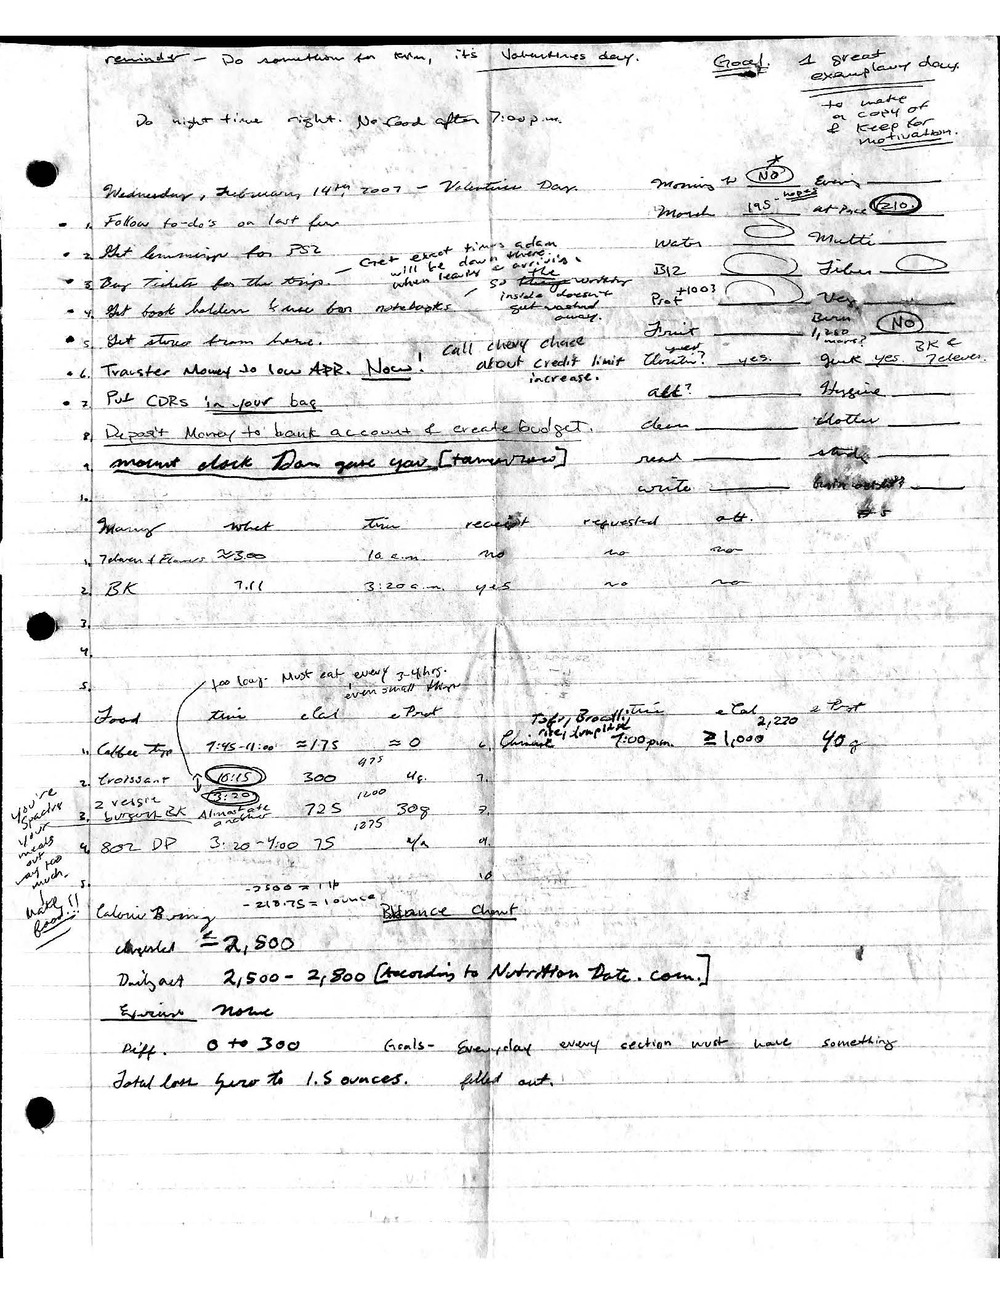 reminder - Do something for him, it's Valentines day.
Goal. 1 great exemplary day.
to make a copy of & keep for motivation.
Do night time right. No food after 7:00 p.m.
Wednesday, February 14th 2007 - Valentines Day.
Morning to NO Evening
1. Follow to-do's on last few
March 195 - nopes at Price 210.
2. Get lemmings for PS2
Water Multi
3. Buy Tickets for the trip. - Get exact times adam will be down there. when leaving & arriving.
B12 Fiber
4. Get book holders & use box notebooks - so the working inside doesn't get washed away.
Prot +1003 Veg
5. Get stereo from home.
Fruit Burn 1,200 more? NO
6. Transfer Money to low APR. Now! Call chevy chase about credit limit increase.
yes. junk yes. BK & 7eleven.
7. Put CDRs in your bag
att? Hygiene
8. Deposit Money to bank account & create budget.
clean clothes
9. mount clock Dan gave you [tomorrow]
read study
write
#5
Money what time receipt requested att.
1. 7eleven & Flowers ≈3.00 10 a.m. no no no
2. BK 7.11 3:20 a.m. yes no no
3.
4.
5.
too long. Must eat every 3-4 hrs. even small things
Food time ≈ Cal ≈ Prot
Tofu, Broccoli, rice, dumplings time ≈ Cal 2,220 ≈ Prot
1. Coffee 7:45-11:00 ≈175 ≈0
6. Chinese 7:00 p.m. ≥1,000 40g
475
2. Croissant 10:15 300 4g.
7.
3:20 1200
3. 2 veggie burgers BK Almost ate another 725 30g
8.
1275
4. 8oz DP 3:20-4:00 75 n/a
9.
5.
10
You're spacing your meals out way too much. Not good!!
-3500 = 1 lb
-218.75 = 1 ounce
Calorie Burning Balance Chart
ingested ≤ 2,500
Daily act 2,500 - 2,800 [According to Nutrition Data.com.]
Exercise none
Diff. 0 to 300 Goals - Everyday every section must have something filled out.
Total loss zero to 1.5 ounces.